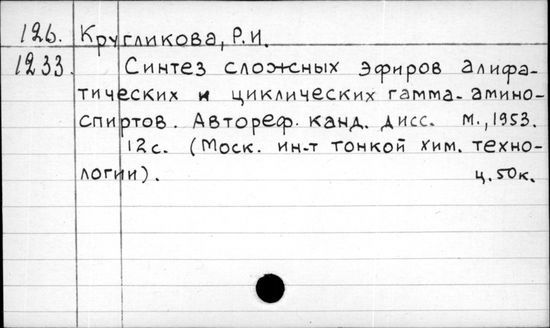 126. Кругликова, Р.И.
1233. Синтез сложных эфиров алифа-
тических и циклических гамма-амино-
спиртов. Автореф. канд. дисс. М., 1953.
12с. (Моск. ин-т тонкой хим. техно-
логии). ц. 50к.